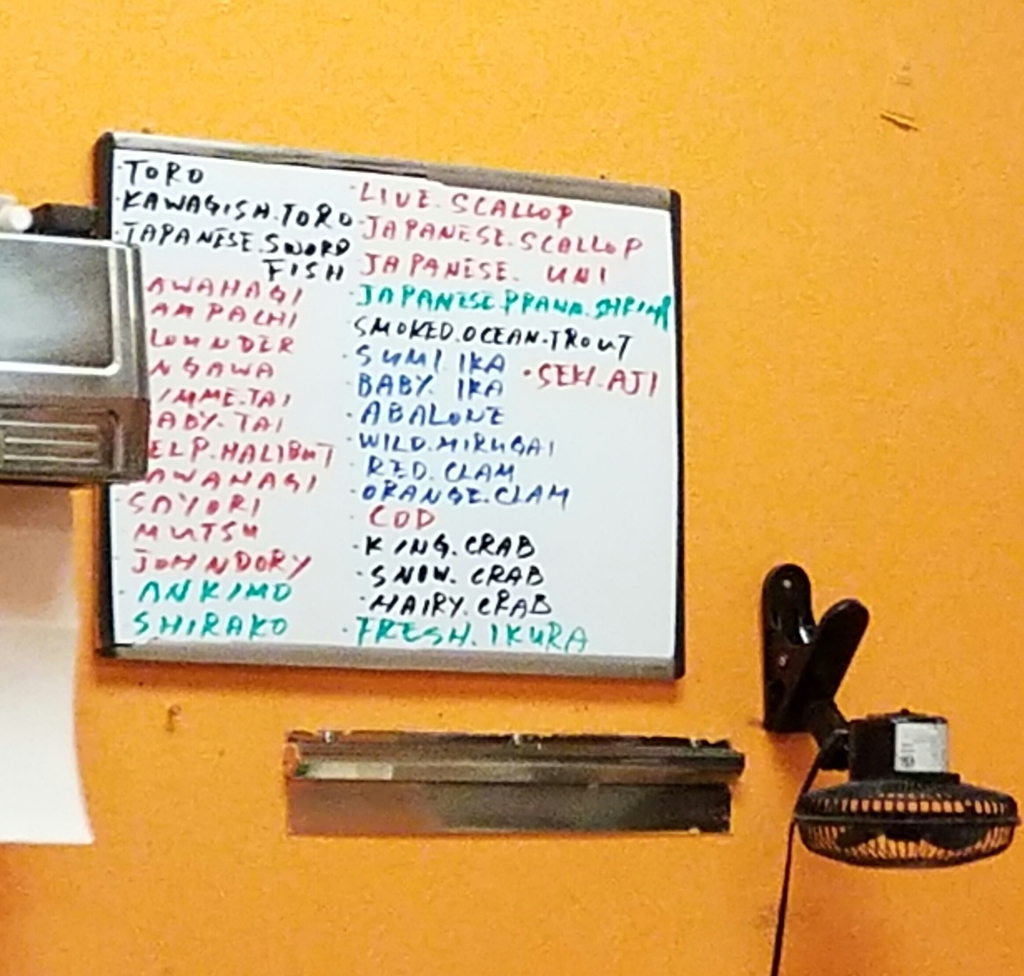 ·TORO
·KAWAGISH.TORO
·JAPANESE.SWORD
FISH
AWAHAGI
AMPACHI
LOUNDER
NGAWA
IMME.TAI
ABY.TAI
ELP.HALIBUT
AWAHAGI
SAYORI
MUTSU
JOHNDORY
·ANKIMO
SHIRAKO
·LIVE.SCALLOP
·JAPANESE.SCALLOP
JAPANESE. UNI
·JAPANESE.PPANA.SHRIMP
SMOKED.OCEAN.TROUT
·SUMI IKA
·SEKI.AJI
·BABY. IKA
·ABALONE
·WILD.MIRUGAI
·RED.CLAM
·ORANGE.CLAM
·COD
·KING.CRAB
·SNOW. CRAB
·HAIRY.CRAB
·FRESH.IKURA